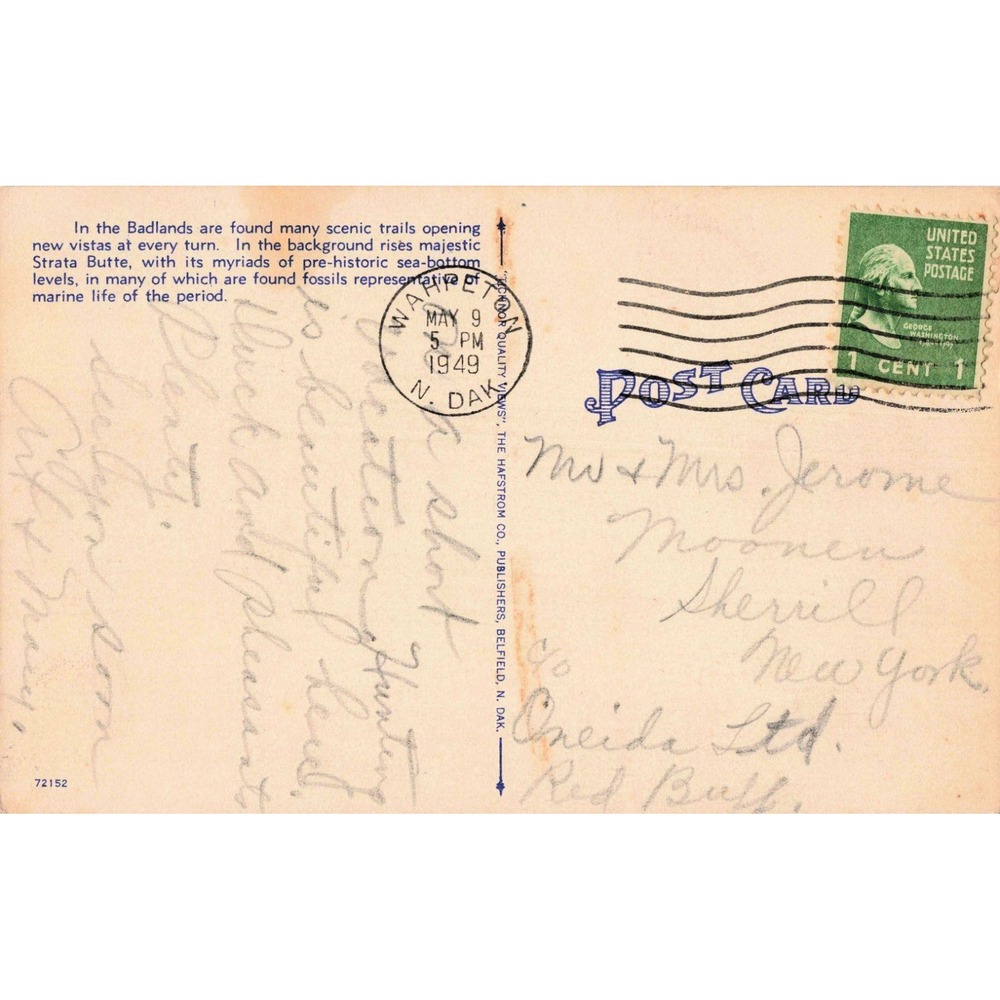 In the Badlands are found many scenic trails opening
new vistas at every turn. In the background rises majestic
Strata Butte, with its myriads of pre-historic sea-bottom
levels, in many of which are found fossils representative of
marine life of the period.
On a short
vacation. Hunting
is beautiful here.
Duck and pheasants
Plenty.
See you soon
Art & Mary.
72152
"TICHNOR QUALITY VIEWS", THE HAFSTROM CO., PUBLISHERS, BELFIELD, N. DAK.
WAHPETON
MAY 9
5 PM
1949
N. DAK.
UNITED
STATES
POSTAGE
GEORGE
WASHINGTON
1 CENT 1
POST CARD
Mr & Mrs. Jerome
Moonen
Sherrill
New York.
c/o
Oneida Ltd.
Red Buff.